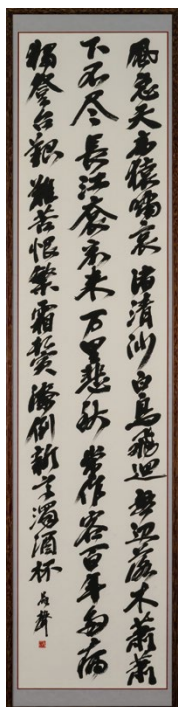 風急天高猿嘯哀渚清沙白鳥飛迴無边落木蕭蕭
下不尽長江衮衮来万里悲秋常作客百年多病
獨登台艱難苦恨繁霜鬢潦倒新亭濁酒杯